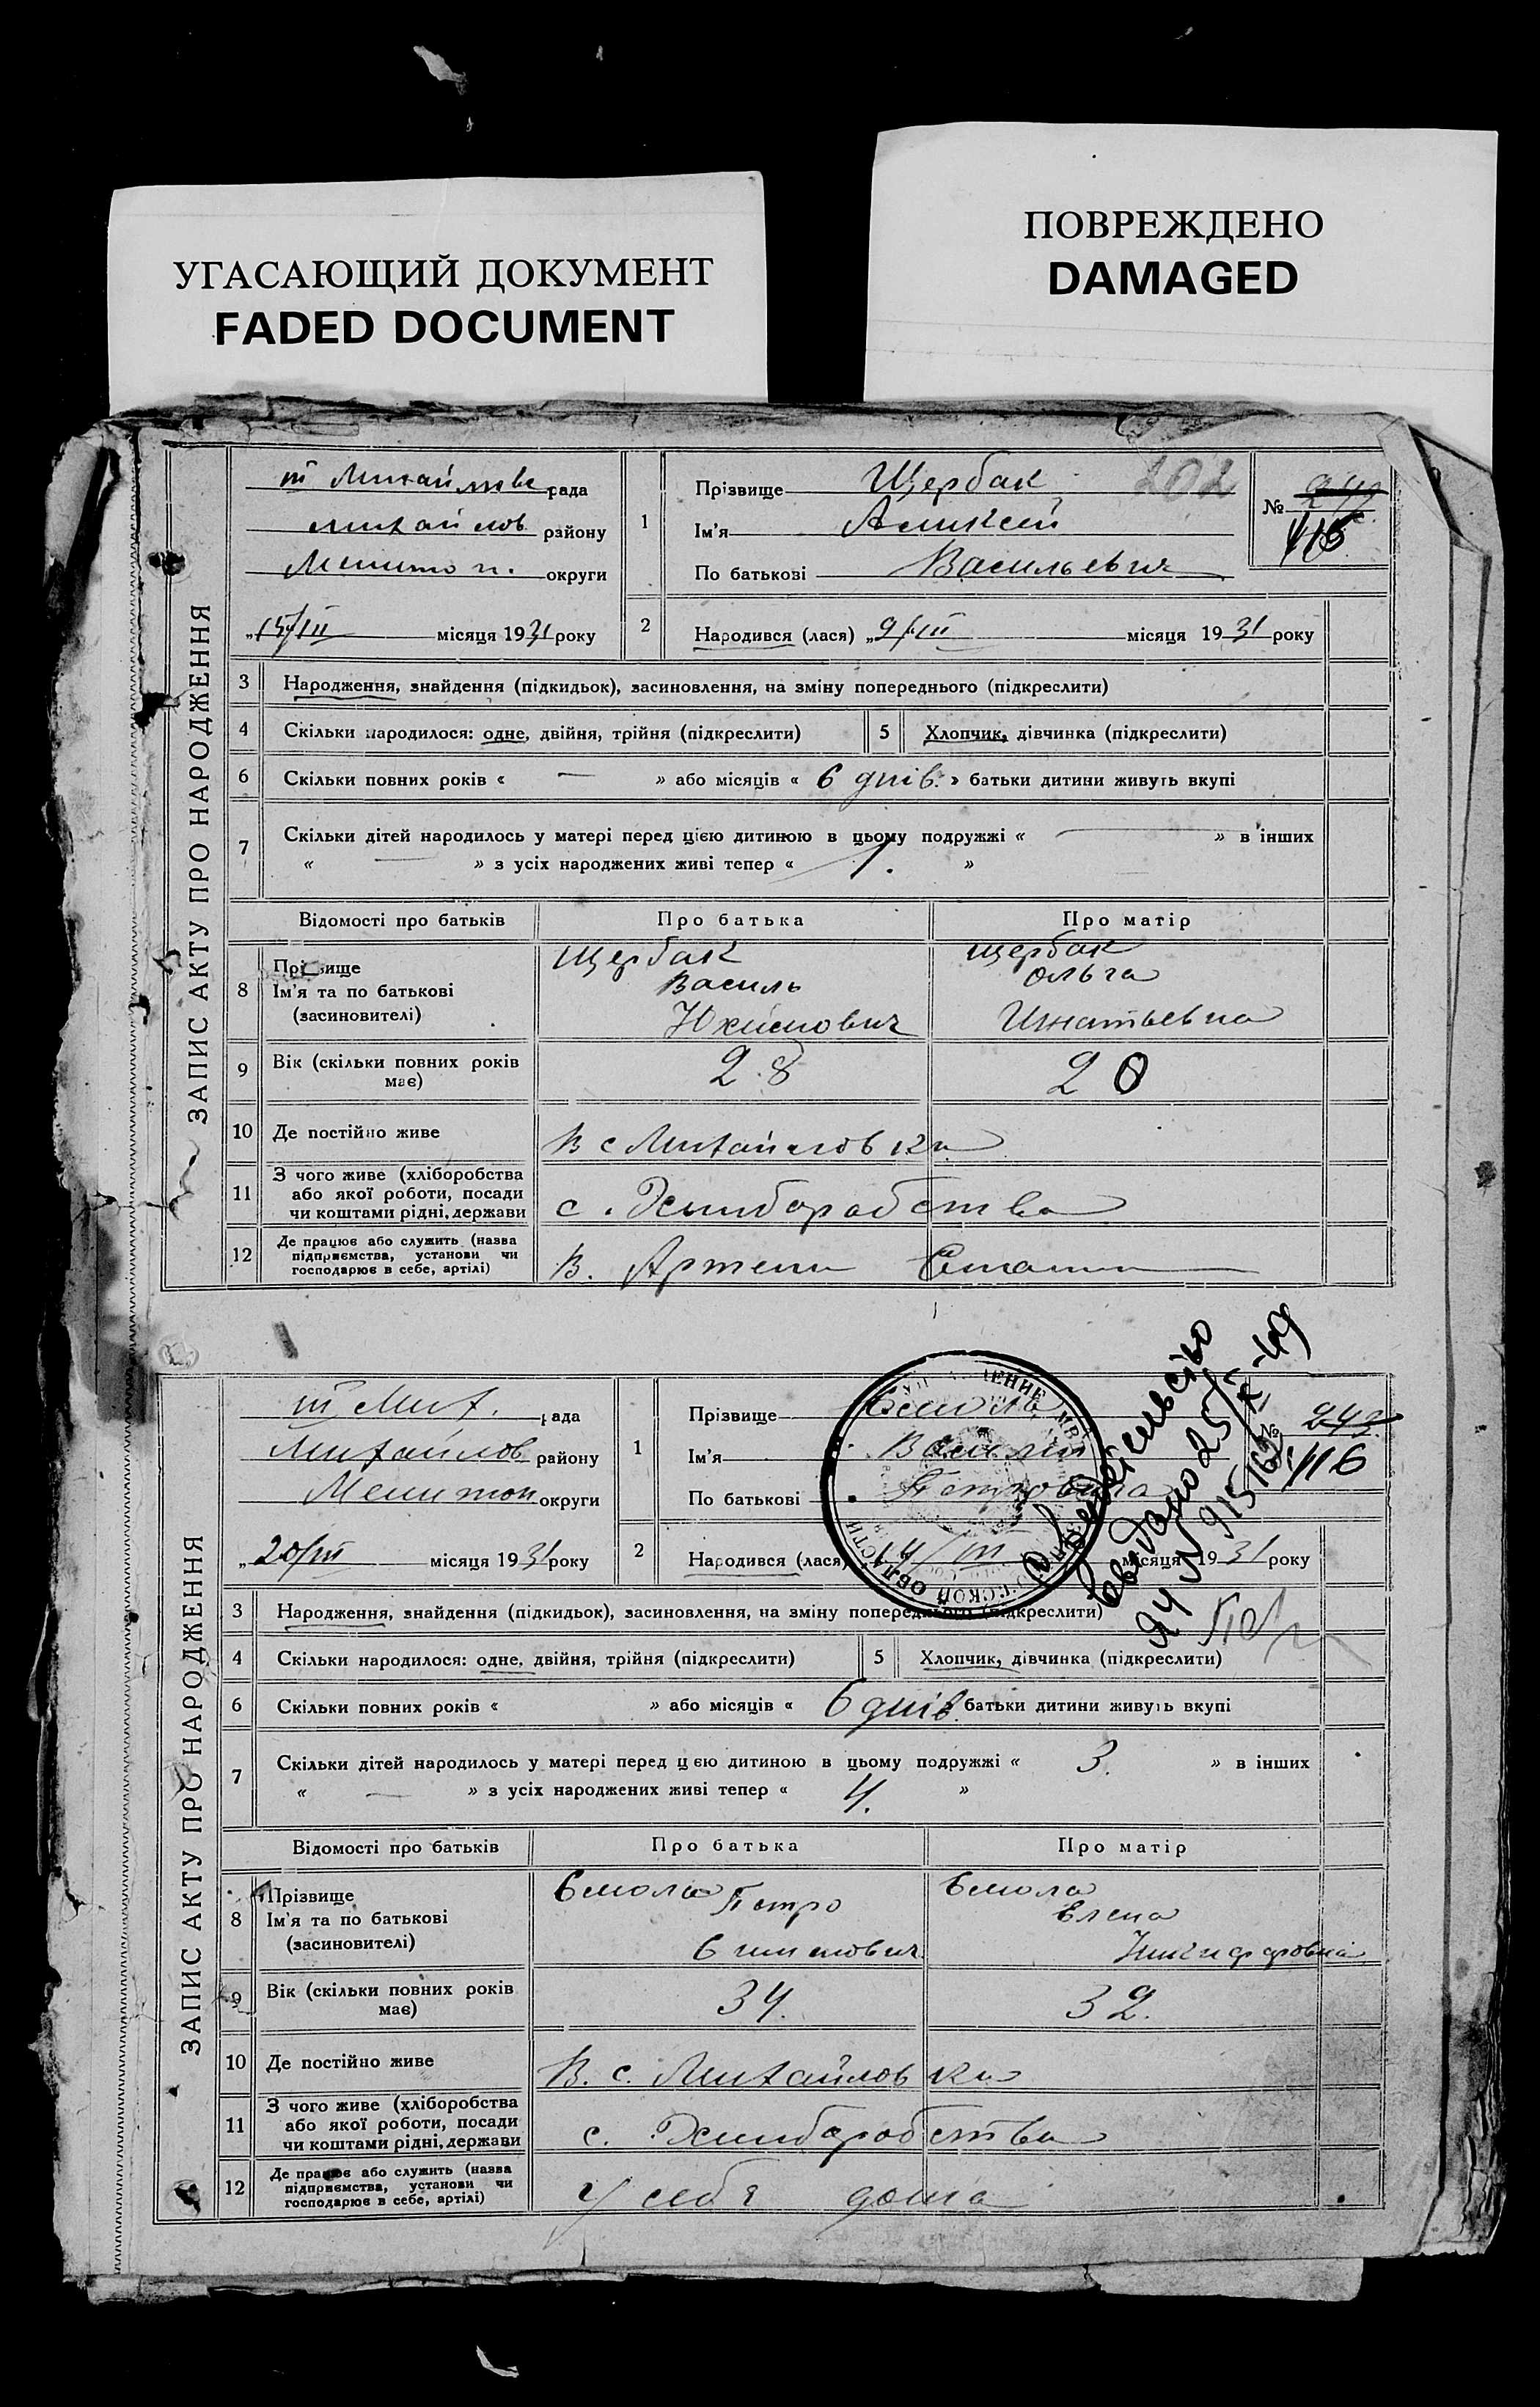 УГАСАЮЩИЙ ДОКУМЕНТ
FADED DOCUMENT
ПОВРЕЖДЕНО
DAMAGED
ЗАПИС АКТУ ПРО НАРОДЖЕННЯ
рада
Михайлов району
округи
„15/III місяця 1931 року
1
Прізвище Щербак 202
Ім'я
По батькові Васильевич
№
116
2
Народився (лася) „9/III місяця 1931 року
3 Народження, знайдення (підкидьок), засиновлення, на зміну попереднього (підкреслити)
4 Скільки народилося: одне, двійня, трійня (підкреслити) 5 Хлопчик, дівчинка (підкреслити)
6 Скільки повних років « — » або місяців « 6 днів » батьки дитини живуть вкупі
7 Скільки дітей народилось у матері перед цією дитиною в цьому подружжі « — » в інших
« — » з усіх народжених живі тепер « 1. »
Відомості про батьків Про батька Про матір
8 Прізвище Щербак Щербак
Ім'я та по батькові Василь Ольга
(засиновителі) Игнатьевна
9 Вік (скільки повних років має) 28 20
10 Де постійно живе В с Михайловка
11 З чого живе (хліборобства
або якої роботи, посади
чи коштами рідні, держави с. Хлиборобства
12 Де працює або служить (назва
підприємства, установи чи
господарює в себе, артілі) В. Артели
ЗАПИС АКТУ ПРО НАРОДЖЕННЯ
III Мих. рада
Михайлов району
Мелитоп округи
„20/III місяця 1931 року
1
Прізвище
Ім'я
По батькові
№ 243
116
2
Народився (лася) 14/III місяця 1931 року
Свідоцтво
видано 25/X-49
ЯЧ N
3 Народження, знайдення (підкидьок), засиновлення, на зміну попереднього (підкреслити)
4 Скільки народилося: одне, двійня, трійня (підкреслити) 5 Хлопчик, дівчинка (підкреслити)
6 Скільки повних років « » або місяців « 6 днів батьки дитини живуть вкупі
7 Скільки дітей народилось у матері перед цією дитиною в цьому подружжі « 3. » в інших
« — » з усіх народжених живі тепер « 4. »
Відомості про батьків Про батька Про матір
8 Прізвище
Ім'я та по батькові Петро Елена
(засиновителі)
9 Вік (скільки повних років має) 34. 32.
10 Де постійно живе В. с. Михайловка
11 З чого живе (хліборобства
або якої роботи, посади
чи коштами рідні, держави с. Хлиборобства
12 Де працює або служить (назва
підприємства, установи чи
господарює в себе, артілі) У себя дома